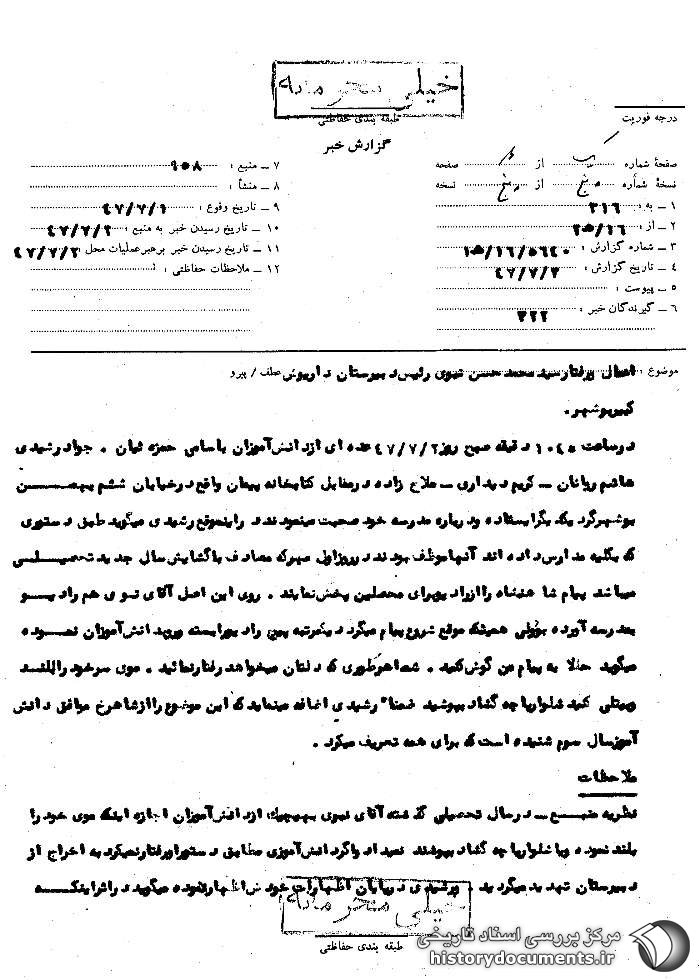 خیلی محرمانه
طبقه بندی حفاظتی
درجه فوریت
گزارش خبر
صفحهٔ شماره از صفحه
نسخهٔ شماره از نسخه
۱ – به : ۳۱۶
۲ – از :
۳ – شماره گزارش :
۴ – تاریخ گزارش : ۴۷/۷/۷
۵ – پیوست :
۶ – گیرندگان خبر : ۳۲۲
۷ – منبع : ۹۵۸
۸ – منشأ :
۹ – تاریخ وقوع : ۴۷/۷/۱
۱۰ – تاریخ رسیدن خبر به منبع : ۴۷/۷/۲
۱۱ – تاریخ رسیدن خبر برهبر عملیات محل : ۴۷/۷/۲
۱۲ – ملاحظات حفاظتی :
موضوع : اعمال و رفتار سید محمد حسن نبوی رئیس دبیرستان داریوش عطف / پیرو
کبیر بوشهر .
در ساعت ۱۰۴۵ دقیقه صبح روز ۴۷/۷/۲ عده ای از دانش آموزان باسامی حمزه ئیان . جواد رشیدی
هاشم – کریم دیداری – فلاح زاده در مقابل کتابخانه پیمان واقع در خیابان ششم بهمن
بوشهر گرد یکدیگر ایستاده و درباره مدرسه خود صحبت مینمودند در اینموقع رشیدی میگوید طبق دستوری
که بکلیه مدارس داده اند آنها موظف بودند در روز اول مهر که مصادف با گشایش سال جدید تحصیلی
میباشد پیام شاهنشاه را از رادیو برای محصلین پخش نمایند . روی این اصل آقای نبوی هم رادیو
بمدرسه آورده بودلی همینکه موقع شروع پیام میگردد یکمرتبه پیچ رادیو را بسته و رو بدانش آموزان نموده
میگوید حالا به پیام من گوش کنید . شما هر طوری که دلتان میخواهد رفتار نمائید . موی سر خود را بلند
و بیتلی کنید شلوار پاچه گشاد بپوشید ضمناً رشیدی اضافه مینماید که این موضوع را از شاهرخ موافق دانش
آموز سال سوم شنیده است که برای همه تعریف میکرد .
ملاحظات
نظریه منبع – در سال تحصیلی گذشته آقای نبوی بهیچیک از دانش آموزان اجازه اینکه موی خود را
بلند نموده و یا شلوار پاچه گشاد بپوشند نمیداد و اگر دانش آموزی مطابق دستور او رفتار نمیکرد به اخراج از
دبیرستان تهدید میگردید . رشیدی در پایان اظهارات خود اظهار نموده میگوید در اثر اینکه
خیلی محرمانه
طبقه بندی حفاظتی
مرکز بررسی اسناد تاریخی
historydocuments.ir